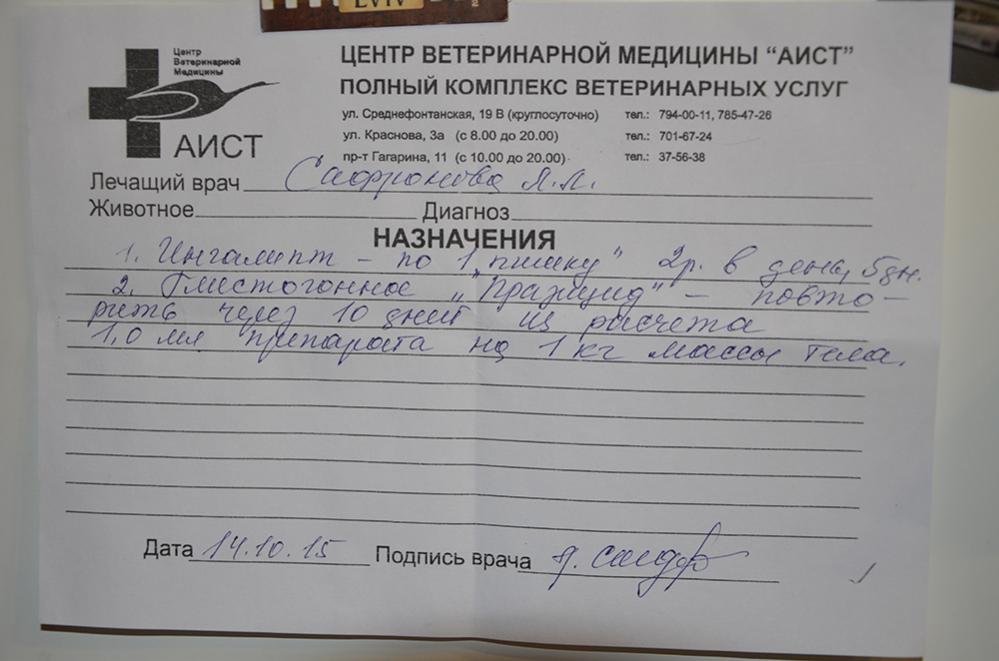 LVIV
Центр
Ветеринарной
Медицины
АИСТ
ЦЕНТР ВЕТЕРИНАРНОЙ МЕДИЦИНЫ “АИСТ”
ПОЛНЫЙ КОМПЛЕКС ВЕТЕРИНАРНЫХ УСЛУГ
ул. Среднефонтанская, 19 В (круглосуточно) тел.: 794-00-11, 785-47-26
ул. Краснова, 3а (с 8.00 до 20.00) тел.: 701-67-24
пр-т Гагарина, 11 (с 10.00 до 20.00) тел.: 37-56-38
Лечащий врач Сафронова Л.Л.
Животное Диагноз
НАЗНАЧЕНИЯ
1. Ингалипт – по 1 „пшику" 2р. в день, 5дн.
2. Глистогонное „Празицид" – повто-
рить через 10 дней из расчета
1,0 мл препарата на 1 кг массы тела.
Дата 14.10.15 Подпись врача